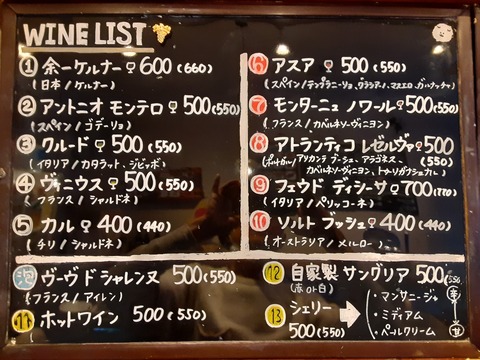 WINE LIST
① 余一ケルナー ♀ 600 (660)
(日本/ケルナー)
② アントニオ モンテロ ♀ 500 (550)
(スペイン/ゴデーリョ)
③ クルード ♀ 500 (550)
(イタリア/カタラット、ジビッボ)
④ ヴィニウス ♀ 500 (550)
(フランス/シャルドネ)
⑤ カル ♀ 400 (440)
(チリ/シャルドネ)
⑥ アスア ♀ 500 (550)
(スペイン/テンプラニーリョ、グラシアノ、マスエロ、ガルナッチャ)
⑦ モンターニュ ノワール ♀ 500 (550)
(フランス/カベルネソーヴィニヨン)
⑧ アトランティコ レゼルヴァ ♀ 500 (550)
(ポルトガル/アリカンテ ブーシェ、アラゴネス、
カベルネソーヴィニヨン、トゥーリガフランカ)
⑨ フェウド ディシーサ ♀ 700 (770)
(イタリア/ペリッコーネ)
⑩ ソルト ブッシュ ♀ 400 (440)
(オーストラリア/メルロー)
泡 ヴーヴ ド シャレンヌ 500 (550)
(フランス/アイレン)
⑪ ホットワイン 500 (550)
⑫ 自家製 サングリア 500 (550)
(赤 or 白)
⑬ シェリー
500 (550)
・マンサニージャ 辛
・ミディアム
・ペールクリーム 甘